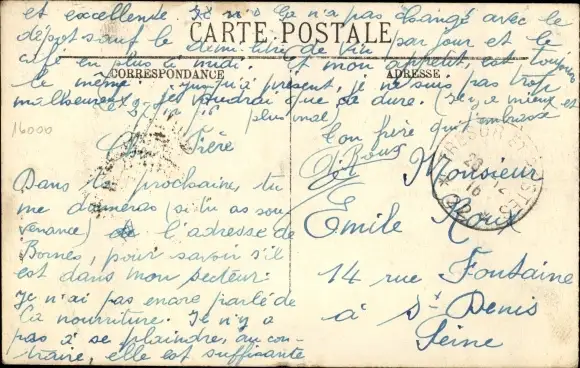 et excellente. Il n'y a pas changé avec le
dépôt sauf le demi-litre de vin par jour et le
café en plus à midi. Et mon appétit est toujours
le même. jusqu'à présent, je ne suis pas trop
malheureux, je voudrai que ça dure. y a mieux et
plus mal
CARTE POSTALE
CORRESPONDANCE
ADRESSE
16000
Ton frère qui t'embrasse
Roux
Cher Frère
Dans ta prochaine, tu
me donneras (si tu as sou
venance) l'adresse de
Bornes, pour savoir s'il
est dans mon secteur.
Je n'ai pas encore parlé de
la nourriture. Je n'y a
pas à se plaindre, au con-
traire, elle est suffisante
Monsieur
Emile Roux
14 rue Fontaine
à St Denis
Seine
TRESOR ET POSTES